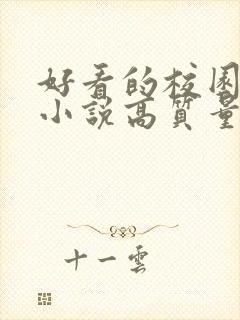 好看的校园
小說高質量
十一雲